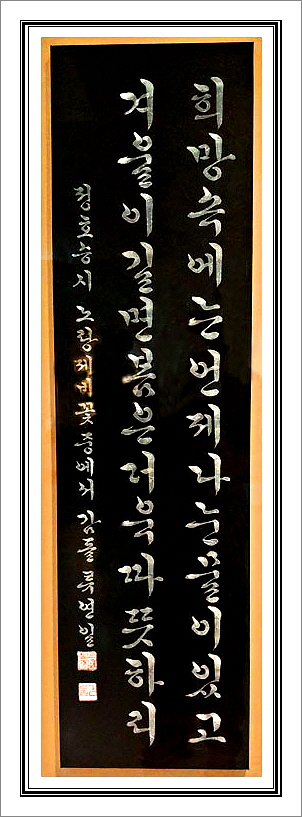 희망속에는언제나눈물이있고
겨울이길면봄은더욱따뜻하리
정호승시 노랑제비꽃 중에서